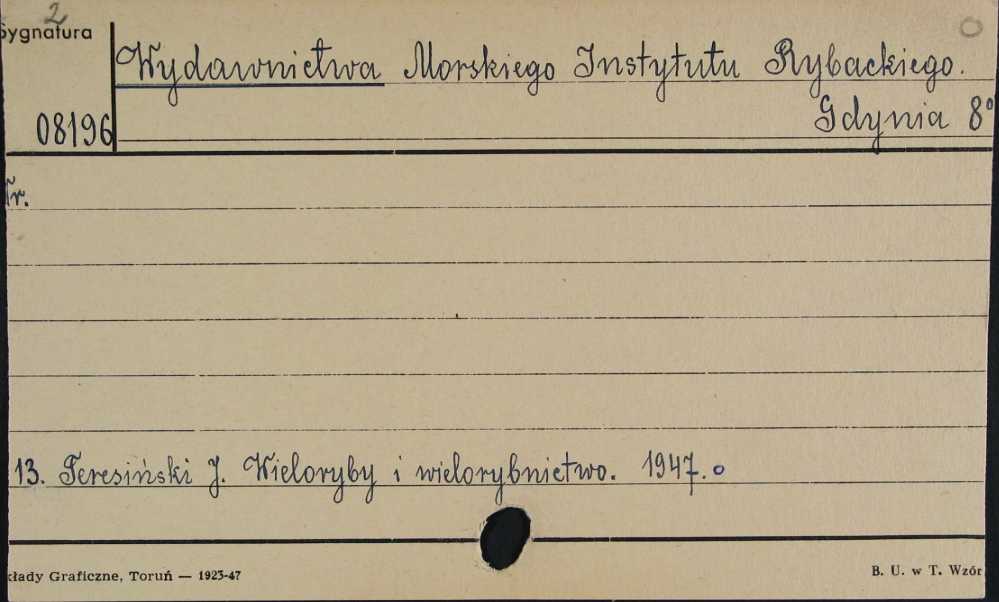 2
Sygnatura
Wydawnictwa Morskiego Instytutu Rybackiego.
08196
Gdynia 8°
Nr.
13. Teresiński J. Wieloryby i wielorybnictwo. 1947.
kłady Graficzne, Toruń — 1923-47
B. U. w T. Wzór